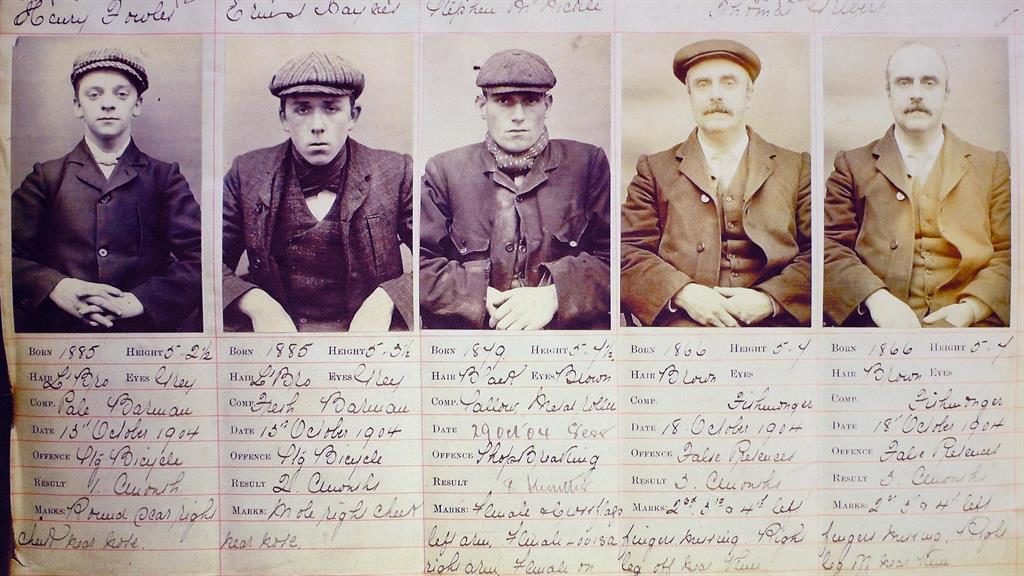 Henry Fowles Ernest Haynes Stephen McNickle Thomas Gilbert
BORN 1885 HEIGHT 5-2½ BORN 1885 HEIGHT 5-3½ BORN 1879 HEIGHT 5-7½ BORN 1866 HEIGHT 5-4 BORN 1866 HEIGHT 5-4
HAIR L' Bro EYES Grey HAIR L' Bro EYES Grey HAIR Black EYES Brown HAIR Brown EYES HAIR Brown EYES
COMP. Pale Barman COMP. Fresh Barman COMP. Sallow Metal roller COMP. Fishmonger COMP. Fishmonger
DATE 13" October 1904 DATE 13" October 1904 DATE 29 Oct 04 DATE 18 October 1904 DATE 18" October 1904
OFFENCE Stg Bicycle OFFENCE Stg Bicycle OFFENCE Shop Breaking OFFENCE False Pretences OFFENCE False Pretences
RESULT 1. Cmonth RESULT 2. Cmonths RESULT 8 months RESULT 3. Cmonths RESULT 3. Cmonths
MARKS: Round scar right MARKS: Mole right cheek MARKS: Female MARKS: 2nd 3rd & 4th left MARKS: 2nd 3 & 4th left
cheek near nose. near nose. left arm, Female fingers missing. Right fingers missing. Right
right arm, Female on leg off near leg off near